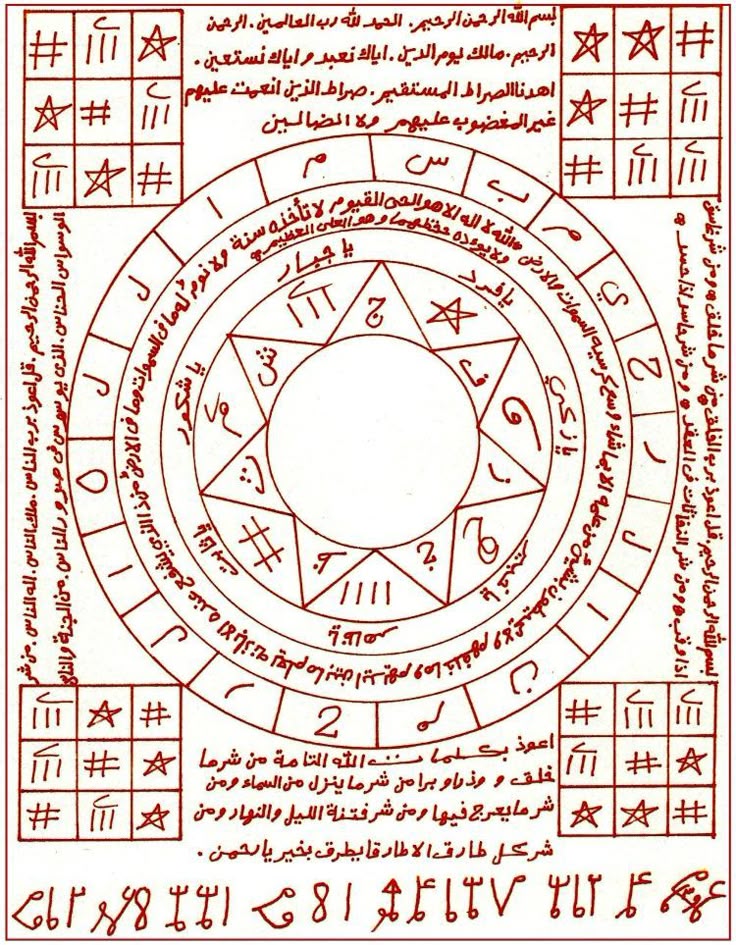 بسم الله الرحمن الرحيم . الحمد لله رب العالمين . الرحمن
الرحيم . مالك يوم الدين . اياك نعبد و اياك نستعين .
اهدنا الصراط المستقيم . صراط الذين انعمت عليهم
غير المغضوب عليهم ولا المضالمين
بسم الله الرحمن الرحيم قل اعوذ برب الفلق من شر ما خلق ومن شر غاسق
اذا وقب ومن شر النفاثات في العقد ومن شر حاسد اذا حسد
ب س م ا ل ل ه ا ل ر ح م ن ا ل ر ح ي م
الله لا اله الا هو الحي القيوم لا تأخذه سنة ولا نوم له ما في السموات وما في الارض من ذا الذي يشفع عنده الا باذنه يعلم ما بين ايديهم وما خلفهم ولا يحيطون بشيئ من علمه الا بما شاء وسع كرسيه السموات والارض
ولا يؤده حفظهما وهو العلي العظيم
يا فرد
يا جبار
يا شكور
يا ثابت
يا زكي
ف
ج
ش
ث
ز
بسم الله الرحمن الرحيم . قل اعوذ برب الناس . ملك الناس . اله الناس . من شر
الوسواس الخناس . الذي يوسوس في صدور الناس . من الجنة والناس
اعوذ بكلمات الله التامة من شر ما
خلق و وذر و برا من شر ما ينزل من السماء ومن
شر ما يعرج فيها ومن شر فتنة الليل والنهار ومن
شر كل طارق الا طارقا يطرق بخير يا رحمن .